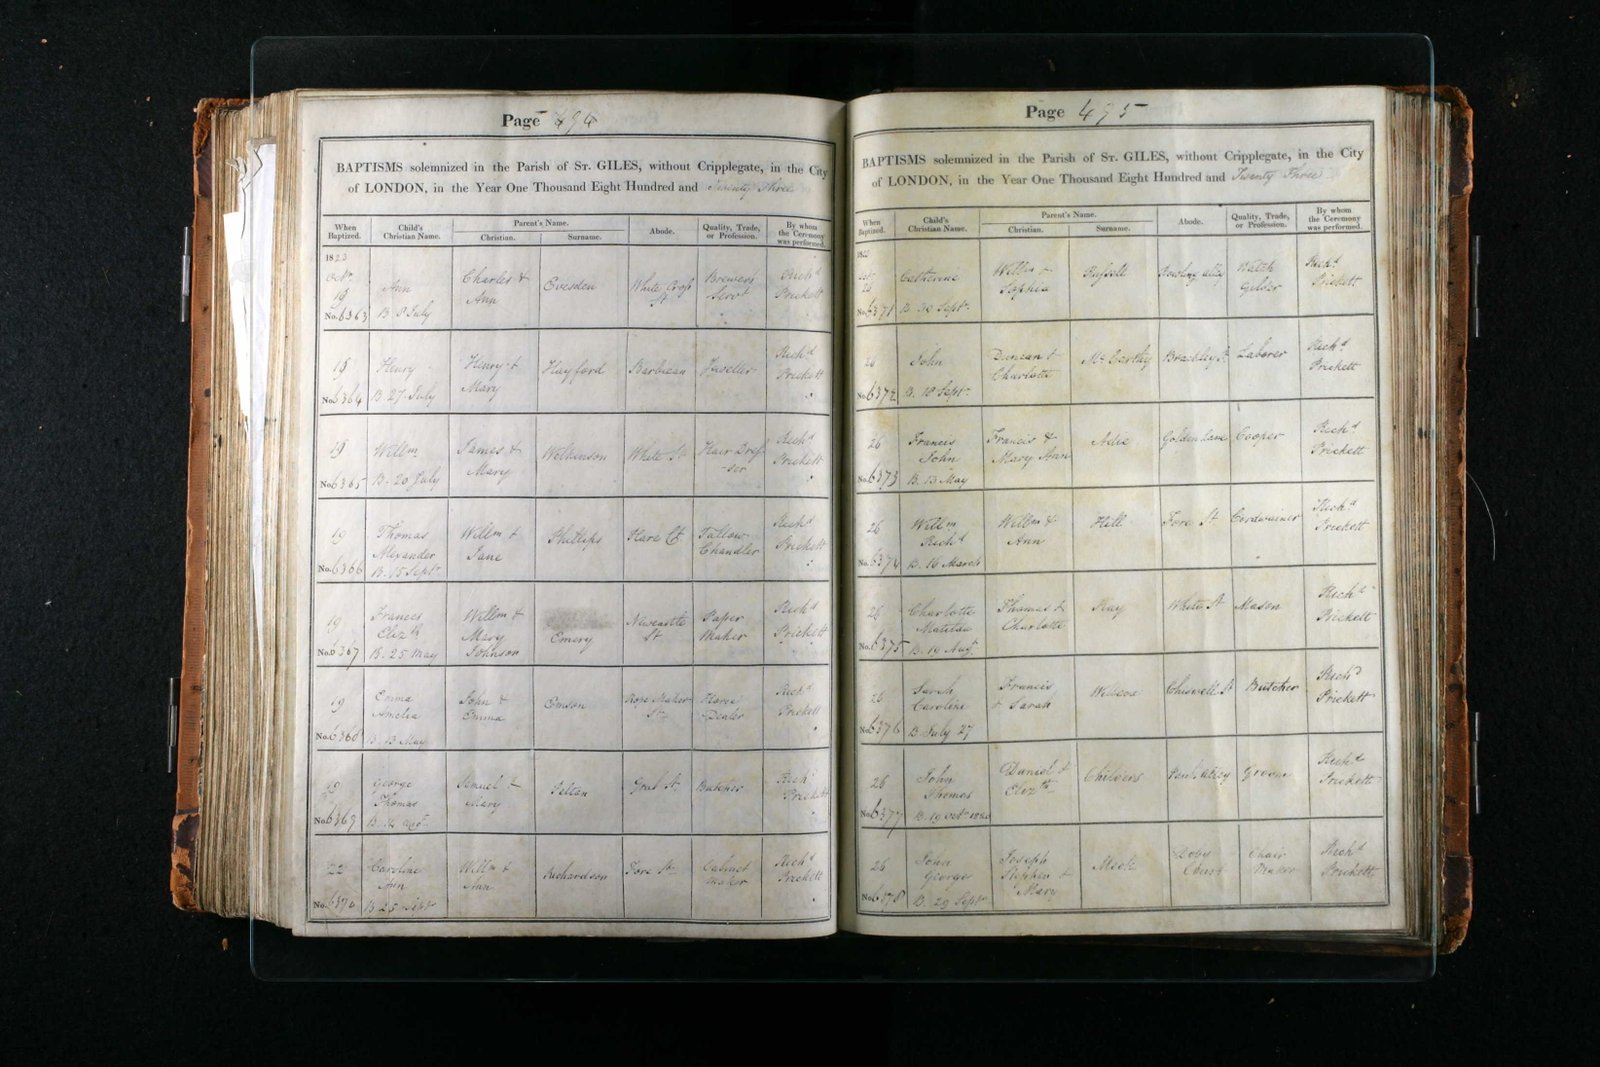 Page 494
BAPTISMS solemnized in the Parish of ST. GILES, without Cripplegate, in the City
of LONDON, in the Year One Thousand Eight Hundred and Twenty Three
When Baptized. Child's Christian Name. Parent's Name. Christian. Surname. Abode. Quality, Trade, or Profession. By whom the Ceremony was performed.
1823
Octr 19 Ann Charles & Ann Evesden White Cross St Brewers Servt Richd Prickett
No. 6363 B. 8 July
19 Henry Henry & Mary Hayford Barbican Jeweller Richd Prickett
No. 6364 B. 27 July
19 Willm James & Mary Wilkinson White St Hair Dresser Richd Prickett
No. 6365 B. 20 July
19 Thomas Alexander Willm & Jane Phillips Hare Ct Tallow Chandler Richd Prickett
No. 6366 B. 15 Septr
19 Frances Elizth Willm & Mary Johnson Emery Newcastle St Paper Maker Richd Prickett
No. 6367 B. 25 May
19 Emma Amelia John & Emma Emson Rose Maker St Horse Dealer Richd Prickett
No. 6368 B. 13 May
19 George Thomas Samuel & Mary Grub St Butcher Richd Prickett
No. 6369 B. 14
22 Caroline Ann Willm & Ann Richardson Fore St Cabinet Maker Richd Prickett
No. 6370 B. 25 Septr
Page 495
BAPTISMS solemnized in the Parish of ST. GILES, without Cripplegate, in the City
of LONDON, in the Year One Thousand Eight Hundred and Twenty Three
When Baptized. Child's Christian Name. Parent's Name. Christian. Surname. Abode. Quality, Trade, or Profession. By whom the Ceremony was performed.
26 Catherine Willm & Sophia Russell Alley Watch Gilder Richd Prickett
No. 6371 B. 20 Septr
26 John Duncan & Charlotte McCarthy Brackley St Laborer Richd Prickett
No. 6372 B. 18 Septr
26 Francis John Francis & Mary Ann Adie Golden Lane Cooper Richd Prickett
No. 6373 B. 13 May
26 Willm Richd Willm & Ann Hill Fore St Cordwainer Richd Prickett
No. 6374 B. 16 March
26 Charlotte Matilda Thomas & Charlotte Kay White St Mason Richd Prickett
No. 6375 B. 19 Augt
26 Sarah Caroline Francis & Sarah Wilcox Chiswell St Butcher Richd Prickett
No. 6376 B. July 27
26 John Thomas Daniel & Elizth Chilvers Alley Groom Richd Prickett
No. 6377 B. 19 Octr 1820
26 John George Joseph Stephen & Mary Mick Court Chair Maker Richd Prickett
No. 6378 B. 29 Septr